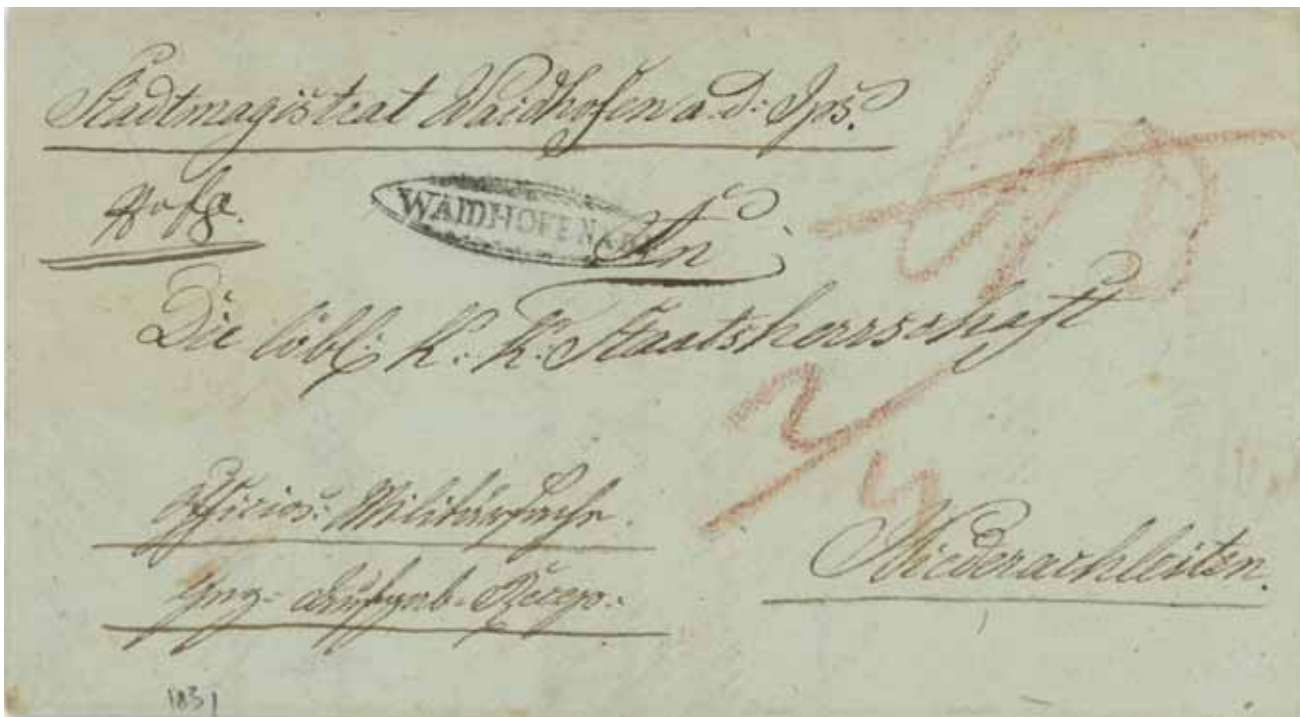 Stadtmagistrat Waidhofen a. d: Ips.
WAIDHOFEN
An
Die löbl: k: k: Staatsherrschaft
2/4
Officios: Militärsache.
gng- Aufgab- Recep:
Niederachleiten.
1831